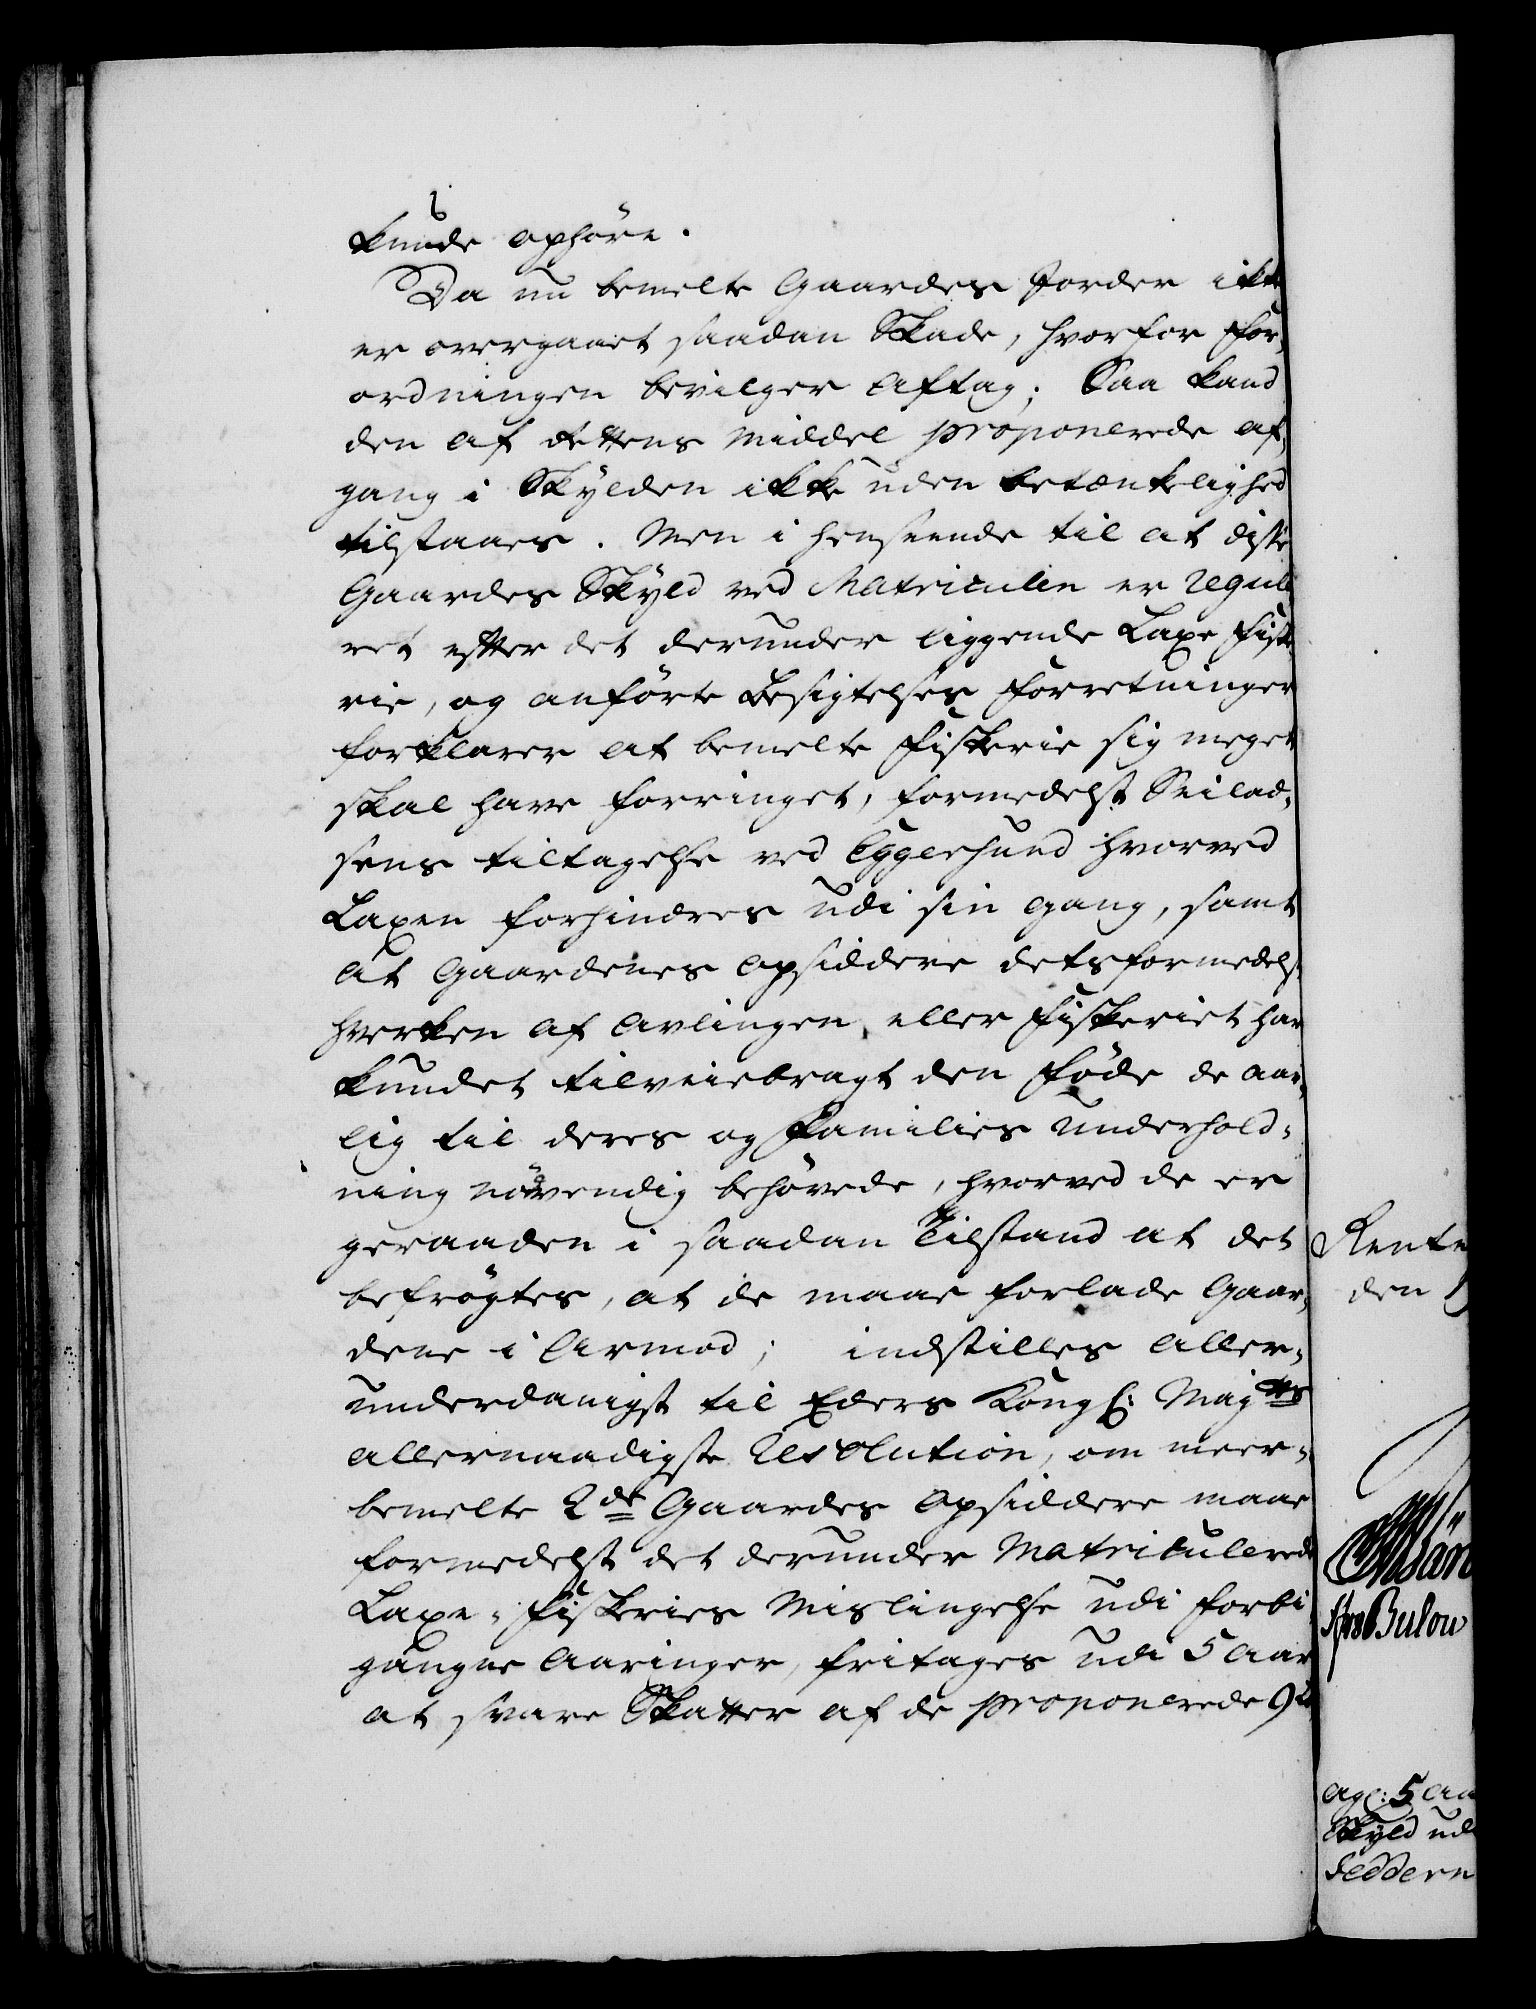 kunde ophøre.
Da nu bemelte Gaardes Jorder ikke
er overgaaet saadan Skade, hvorfor For¸
ordningen bevilger Aftag; Saa kand
den af Rettens Middel proponerede af¸
gang i Skylden ikke uden betænkelighed
tilstaaes. Men i henseende til at disse
Gaardes Skyld ved Matriculen er Regule
ret efter det derunder liggende Laxe Fiske
rie, og anførte Besigtelses Forretninger
forklarer at bemelte Fiskerie sig meget
skal have forringet, formedelst Seilad¸
sens tiltagelse ved Eggersund hvorved
Laxen forhindres udi sin gang, samt
at Gaardenes Opsiddere detsformedelst
hverken af Avlingen eller Fiskeriet har
kundet tilveiebragt den Føde de aar¸
lig til deres og Families underhold¸
ning nødvendig behøvede, hvorved de er
geraaden i saadan Tilstand at det
befrøgtes, at de maae forlade Gaar¸
dene i Armod; indstilles aller¸
underdanigst til Eders Kongl: Mayts
allernaadigste Resolution, om meer¸
bemelte 2de Gaardes Opsiddere maae
formedelst det derunder Matriculerede
Laxe¸ Fiskeries Mislingelse udi forbi
gangne Aaringer, fritages udi 5 Aar
at svare Skatter af de proponerede
Rente
den
Bulow
5 Aa
Skyld ud
Feddern